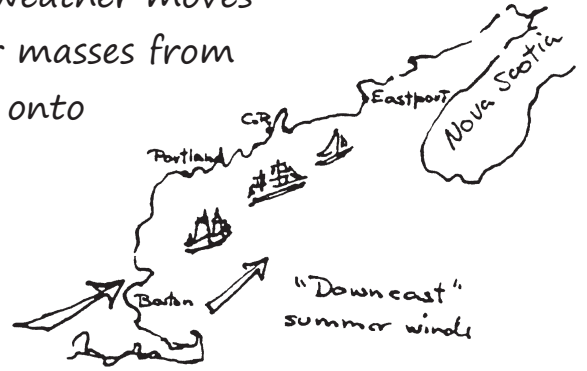 weather moves
masses from
onto
Eastport
Nova Scotia
C.R.
Portland
Boston
"Downeast"
summer winds